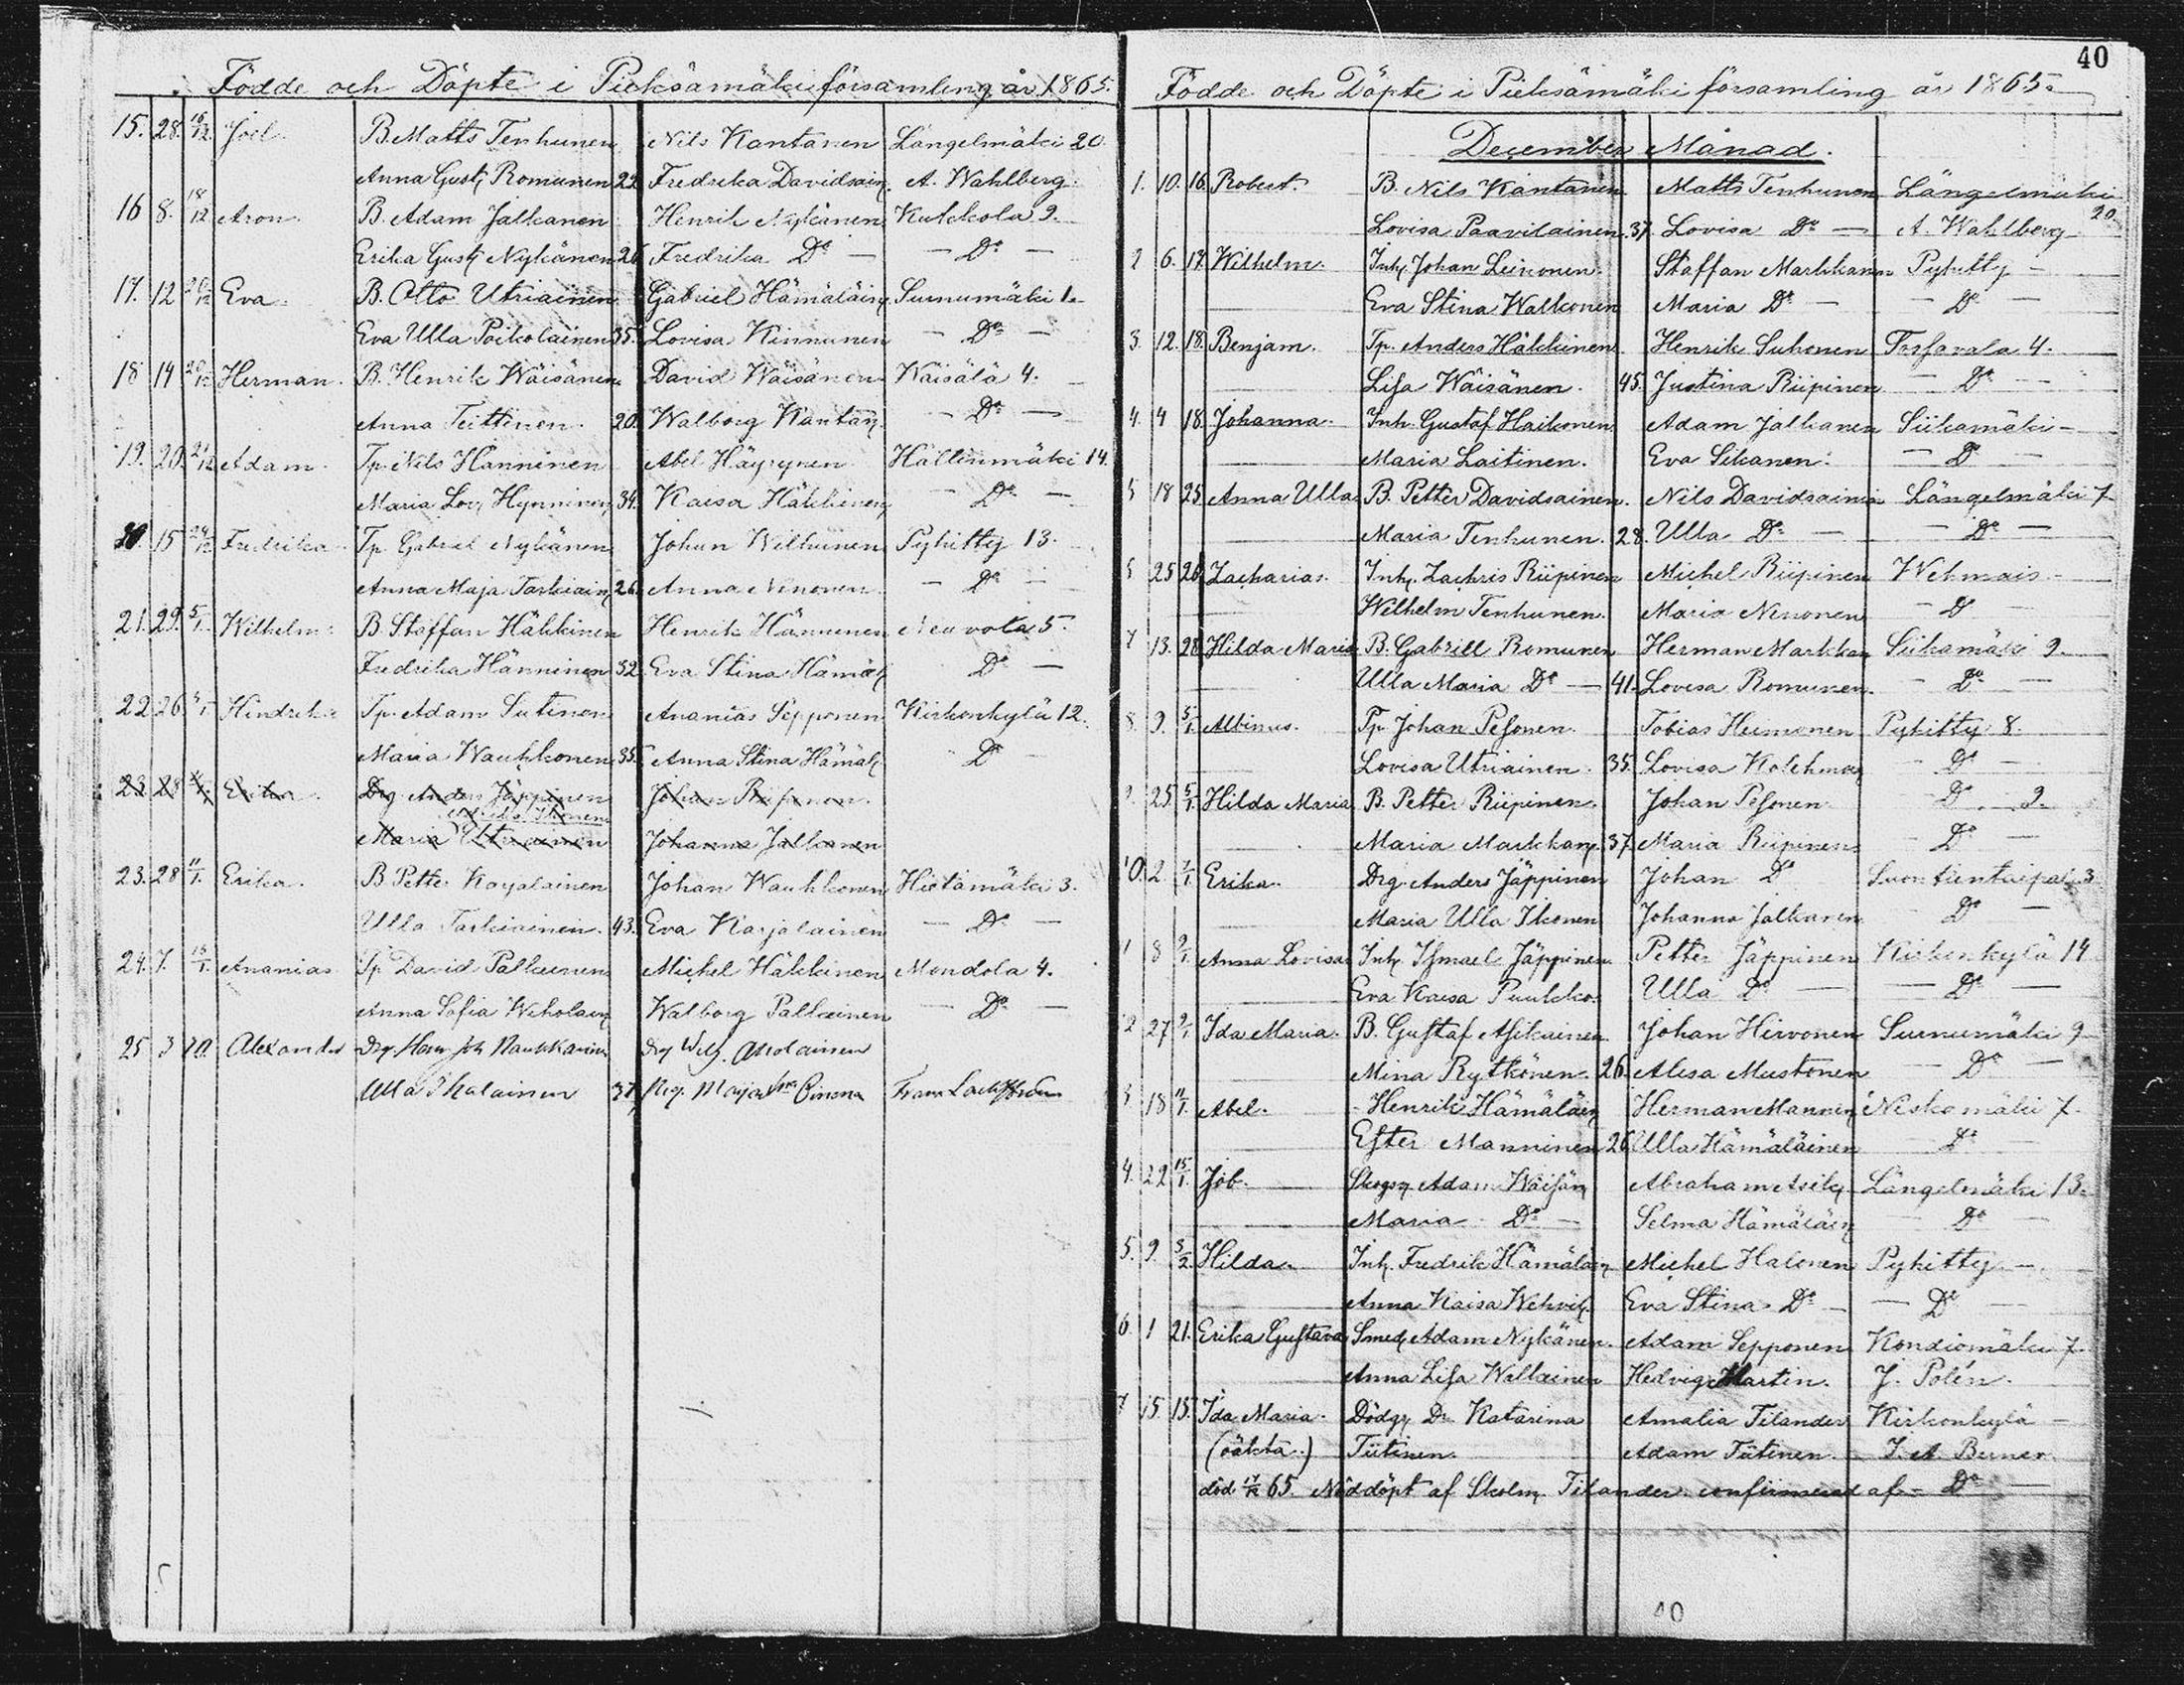 Födde och Döpte i Pieksämäki församling år 1865.
15. 28. 18/12. Joel. B. Matts Tenhunen Nils Kantanen Längelmäki 20
Anna Gust Romunen 22 Fredrika Davidsain. A. Wahlberg.
16 8. 18/12 Aron. B. Adam Jalkanen Henrik Nykänen Kukkola 9.
Erika Gust Nykänen 26 Fredrika Do — — Do —
17. 12 20/12 Eva. B. Otto Utriainen Gabriel Hämäläin Surnumäki 1.
Eva Ulla Poikolainen 35. Lovisa Kinnunen — Do —
18 14 20/12 Herman. B. Henrik Wäisänen David Wäisänen Waisälä 4. —
Anna Teittinen. 20. Walborg Kantan — Do —
19. 20. 21/12 Adam. Tp. Nils Hänninen Abel Häyrynen Hällinmäki 14.
Maria Lov, Hynninen 34. Kaesa Häkkinen — Do —
20. 15 24/12 Fredrika. Tp. Gabriel Nykänen Johan Wilhunen Pyhitty 13.
Anna Maja Tarkiain 26. Anna Nenonen — Do —
21. 29. 5/1. Wilhelm. B. Staffan Häkkinen Henrik Hänninen Neuvola 5.
Fredrika Hänninen 32 Eva Stina Hämäl Do —
22 26 Hindrik Tp. Adam Sutinen Ananias Sepponen Kirkonkylä 12.
Maria Waukkonen 35. Anna Stina Hämäl Do
23. 28 Erika. Drg. Anders Jäppinen Johan Riipinen.
Maria Utriainen Johanna Jalkanen
23. 28 11/1. Erika. B. Petter Karjalainen Johan Waukkonen Hietämäki 3.
Ulla Tarkiainen. 43. Eva Karjalainen — Do —
24. 7. 15/1. Ananias Tp David Palkuinen Michel Häkkinen Mondola 4.
Anna Sofia Weholain Walborg Palkuinen — Do —
25 3 10. Alexander Drg. Joh Naukkarinen Drg
Ulla Ihalainen 37, Maja
40
Födde och Döpte i Pieksämäki församling år 1865.
December Månad.
1. 10. 16. Robert. B. Nils Kantanen Matts Tenhunen Längelmäki
20.
Lovisa Paavilainen. 37. Lovisa Do — A. Wahlberg
2 6. 17. Wilhelm. Inh. Johan Leinonen. Staffan Markkanen Pyhitty —
Eva Stina Walkonen Maria Do — — Do —
3. 12. 18. Benjam. Tp. Anders Häkkinen. Henrik Suhonen Torfavala 4.
Lisa Wäisänen. 45. Justina Riipinen — Do —
4. 4 18. Johanna. Inh. Gustaf Haikonen Adam Jalkanen Siikamäki —
Maria Laitinen. Eva Sikanen. — Do —
5 18 25 Anna Ulla B. Petter Davidsainen. Nils Davidsainen Längelmäki 7
Maria Tenhunen. 28. Ulla Do — — Do —
25 26 Zacharias. Inh. Zachris Riipinen Michel Riipinen Wehmais —
Wilhelm Tenhunen. Maria Nenonen — Do
7 13. 28 Hilda Maria B. Gabriell Romunen Herman Markkan Siikamäki 9.
Ulla Maria Do — 41. Lovisa Romunen. — Do —
8. 9. 5/1. Albinus. Tp. Johan Pesonen. Tobias Heimonen Pyhitty 8.
Lovisa Utriainen. 35. Lovisa Kolehma — Do —
9. 25 5/1. Hilda Maria B. Petter Riipinen. Johan Pesonen. Do 9.
Maria Markkan. 37. Maria Riipinen — Do —
10. 2 7/1. Erika. Drg. Anders Jäppinen Johan Do Suontientaipal 3
Maria Ulla Ikonen Johanna Jalkanen — Do —
1 8 9/1 Anna Lovisa Inh. Ismael Jäppinen Petter Jäppinen Kirkonkylä 14
Eva Kaesa Puukko. Ulla Do — — Do —
2 27 9/1 Ida Maria. B. Gustaf Asikainen Johan Hirvonen Surnumäki 9
Mina Rytkönen. 26. Alesa Mustonen — Do —
3 18 11/1. Abel. Henrik Hämäläin Herman Mannin Niskamäki 7.
Ester Manninen 26 Ulla Hämäläinen Do
4. 22 15/1. Job. Adam Wäisän Abraham Asik Längelmäki 13.
Maria Do — Selma Hämäläin — Do —
5. 9. 3/2. Hilda. Inh. Fredrik Hämäläin Michel Halonen Pyhitty —
Anna Kaisa Wehvil. Eva Stina Do — — Do —
6. 1 21. Erika Gustava Smed Adam Nykänen. Adam Sepponen Kondiomäki 7.
Anna Lisa Wallainen Hedvig Martin. J. Polén.
7 15 15. Ida Maria. Dödgr. Dr Katarina Amalia Tilander Kirkonkylä —
(oäkta.) Tiitinen. Adam Tiitinen. — J. A. Berner.
död 17/12 65. Nöddöpt af Skolm. Tilander. confirmerad af — Do —
40